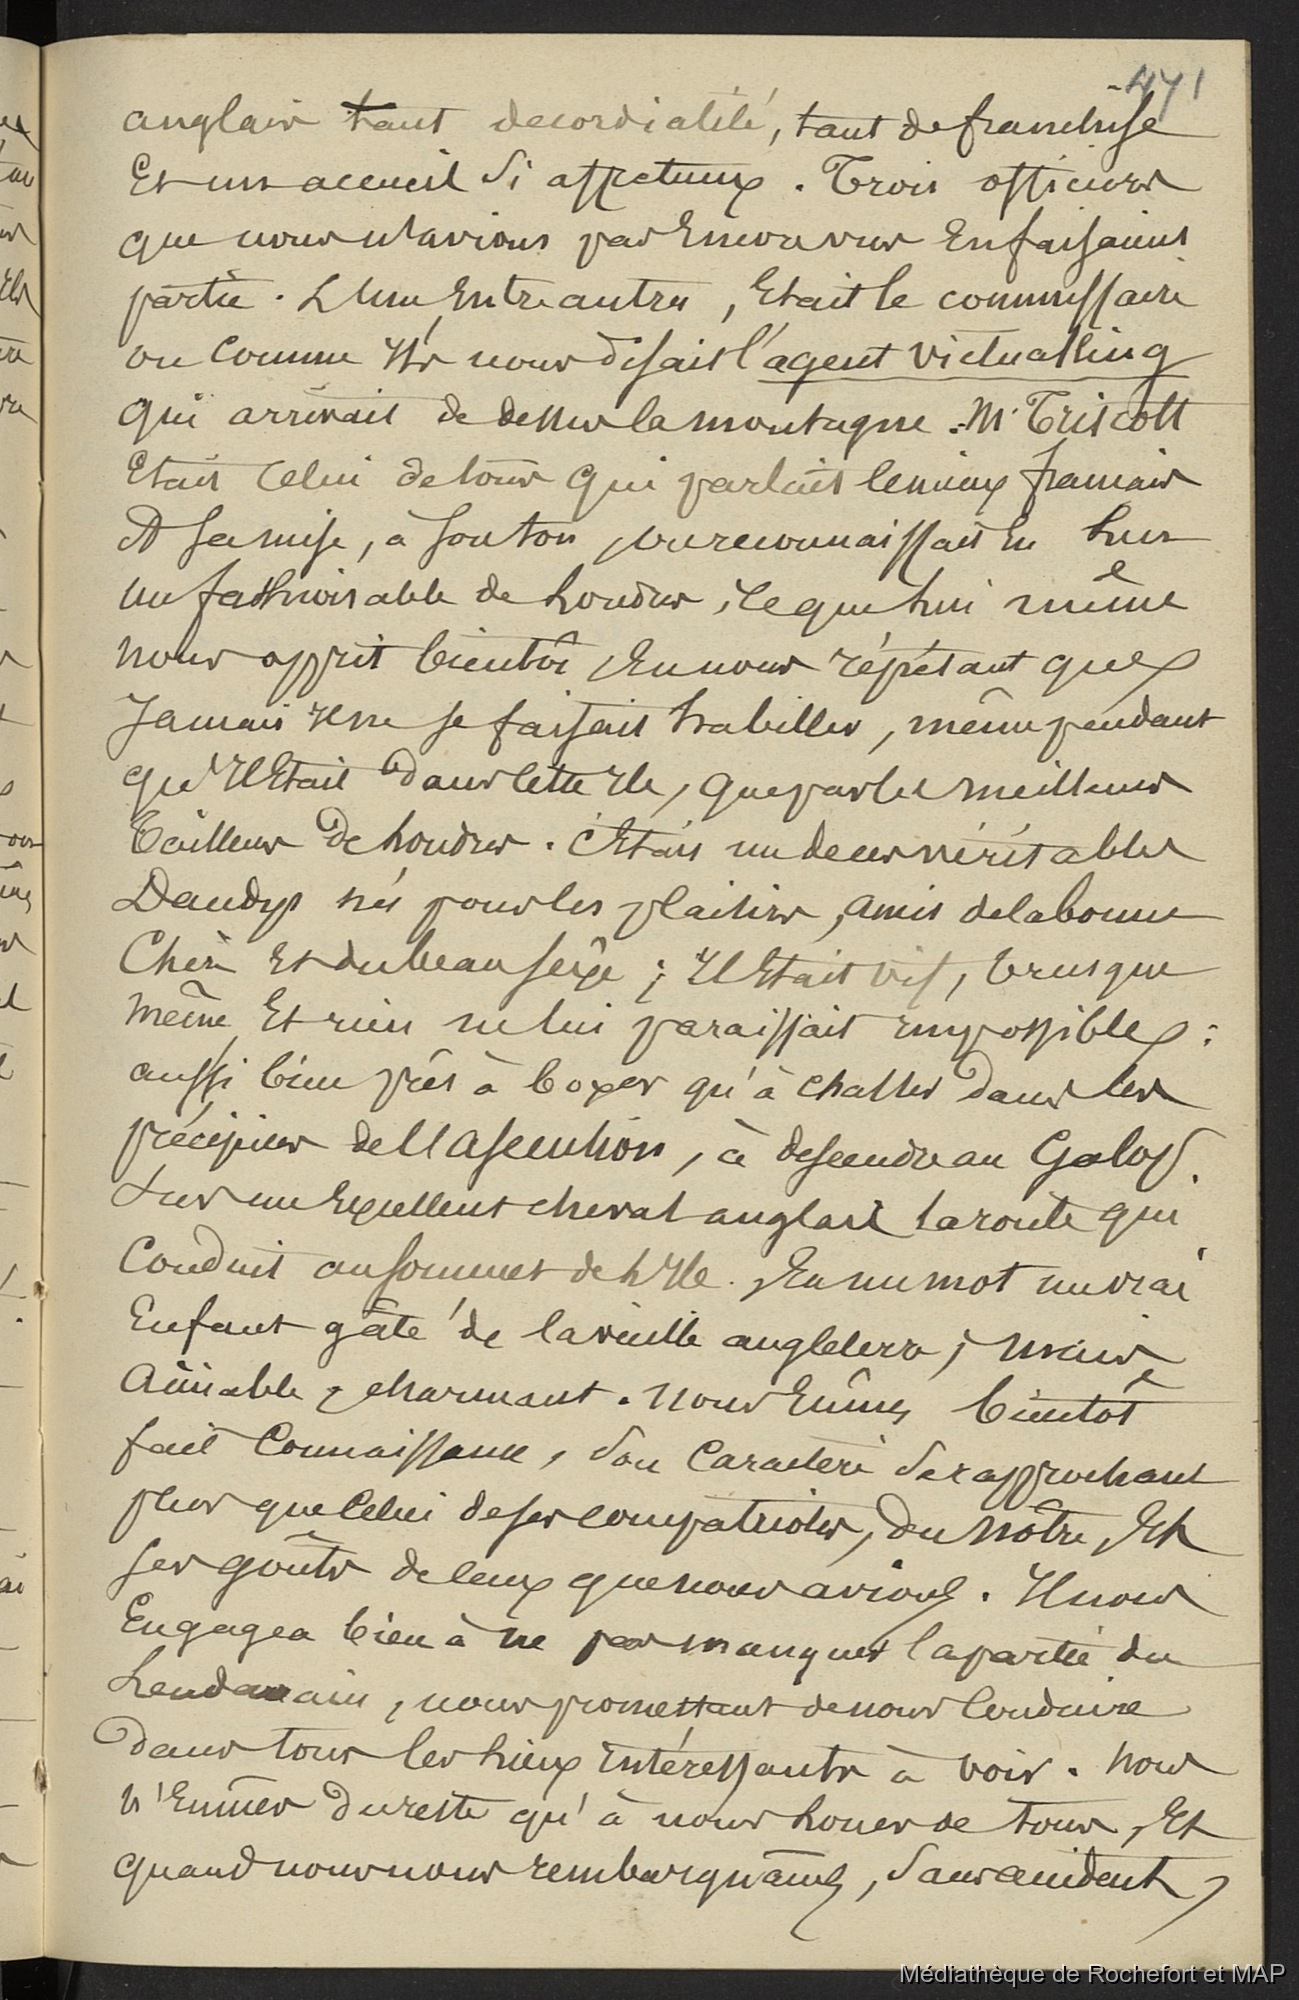 471
anglais tant de cordialité, tant de franchise
Et un accueil si affectueux. Trois officiers
que nous n'avions pas Encore vus En faisaient
partie. L'un Entre autres, Etait le commissaire
ou comme Ils nous disait l'agent victualling
qui arrivait de dessus la montagne. Mr Triscott
Etait celui de tous qui parlait le mieux français
A sa mise, à son ton, on reconnaissait En lui
un fashionable de Londres, ce que lui même
nous apprit bientôt, En nous répétant que
Jamais Il ne se faisait habiller, même pendant
qu'Il Etait dans cette Ile, que par les meilleurs
tailleurs de Londres. C'Etait un de ces véritables
Dandys nés pour les plaisirs, amis de la bonne
Chère Et du beau sexe ; Il Etait vif, brusque
même, Et rien ne lui paraissait Impossible :
aussi bien prêt à boxer qu'à chasser dans les
précipices de l'Ascention, à descendre au Galop.
Sur un Excellent cheval anglais la route qui
Conduit au sommet de l'Ile. En un mot un vrai
Enfant gâté de la vieille angleterre, mais
Aimable, charmant. Nous Eûmes bientôt
fait Connaissance, son Caractère se rapprochant
plus que Celui de ses compatriotes, du nôtre, Et
ses goûts de ceux que nous avions. Il nous
Engagea bien à ne pas manquer la partie du
Lendemain, nous promettant de nous Conduire
dans tous les lieux Intéressants à voir. Nous
n'Eûmes du reste qu'à nous louer de tous, Et
quand nous nous rembarquâmes, sans accident,
Médiathèque de Rochefort et MAP